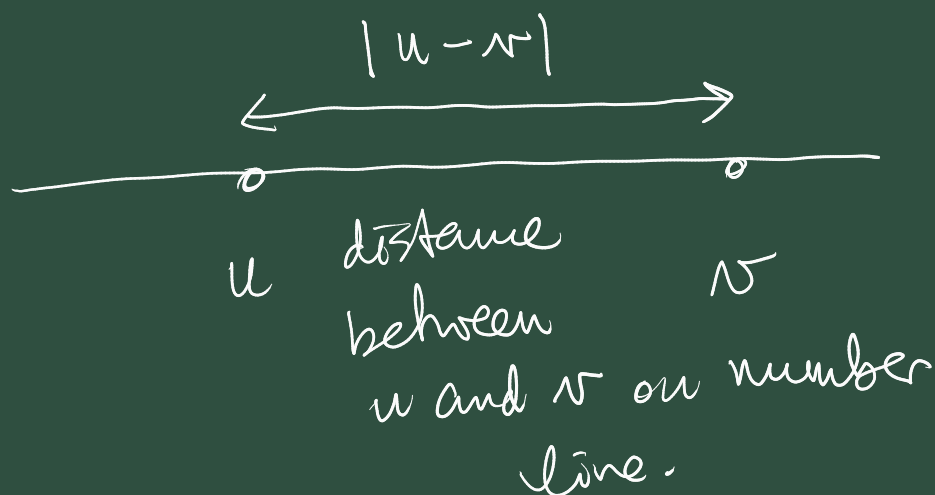 |u - v|
u
v
distance
between
u and v on number
line.